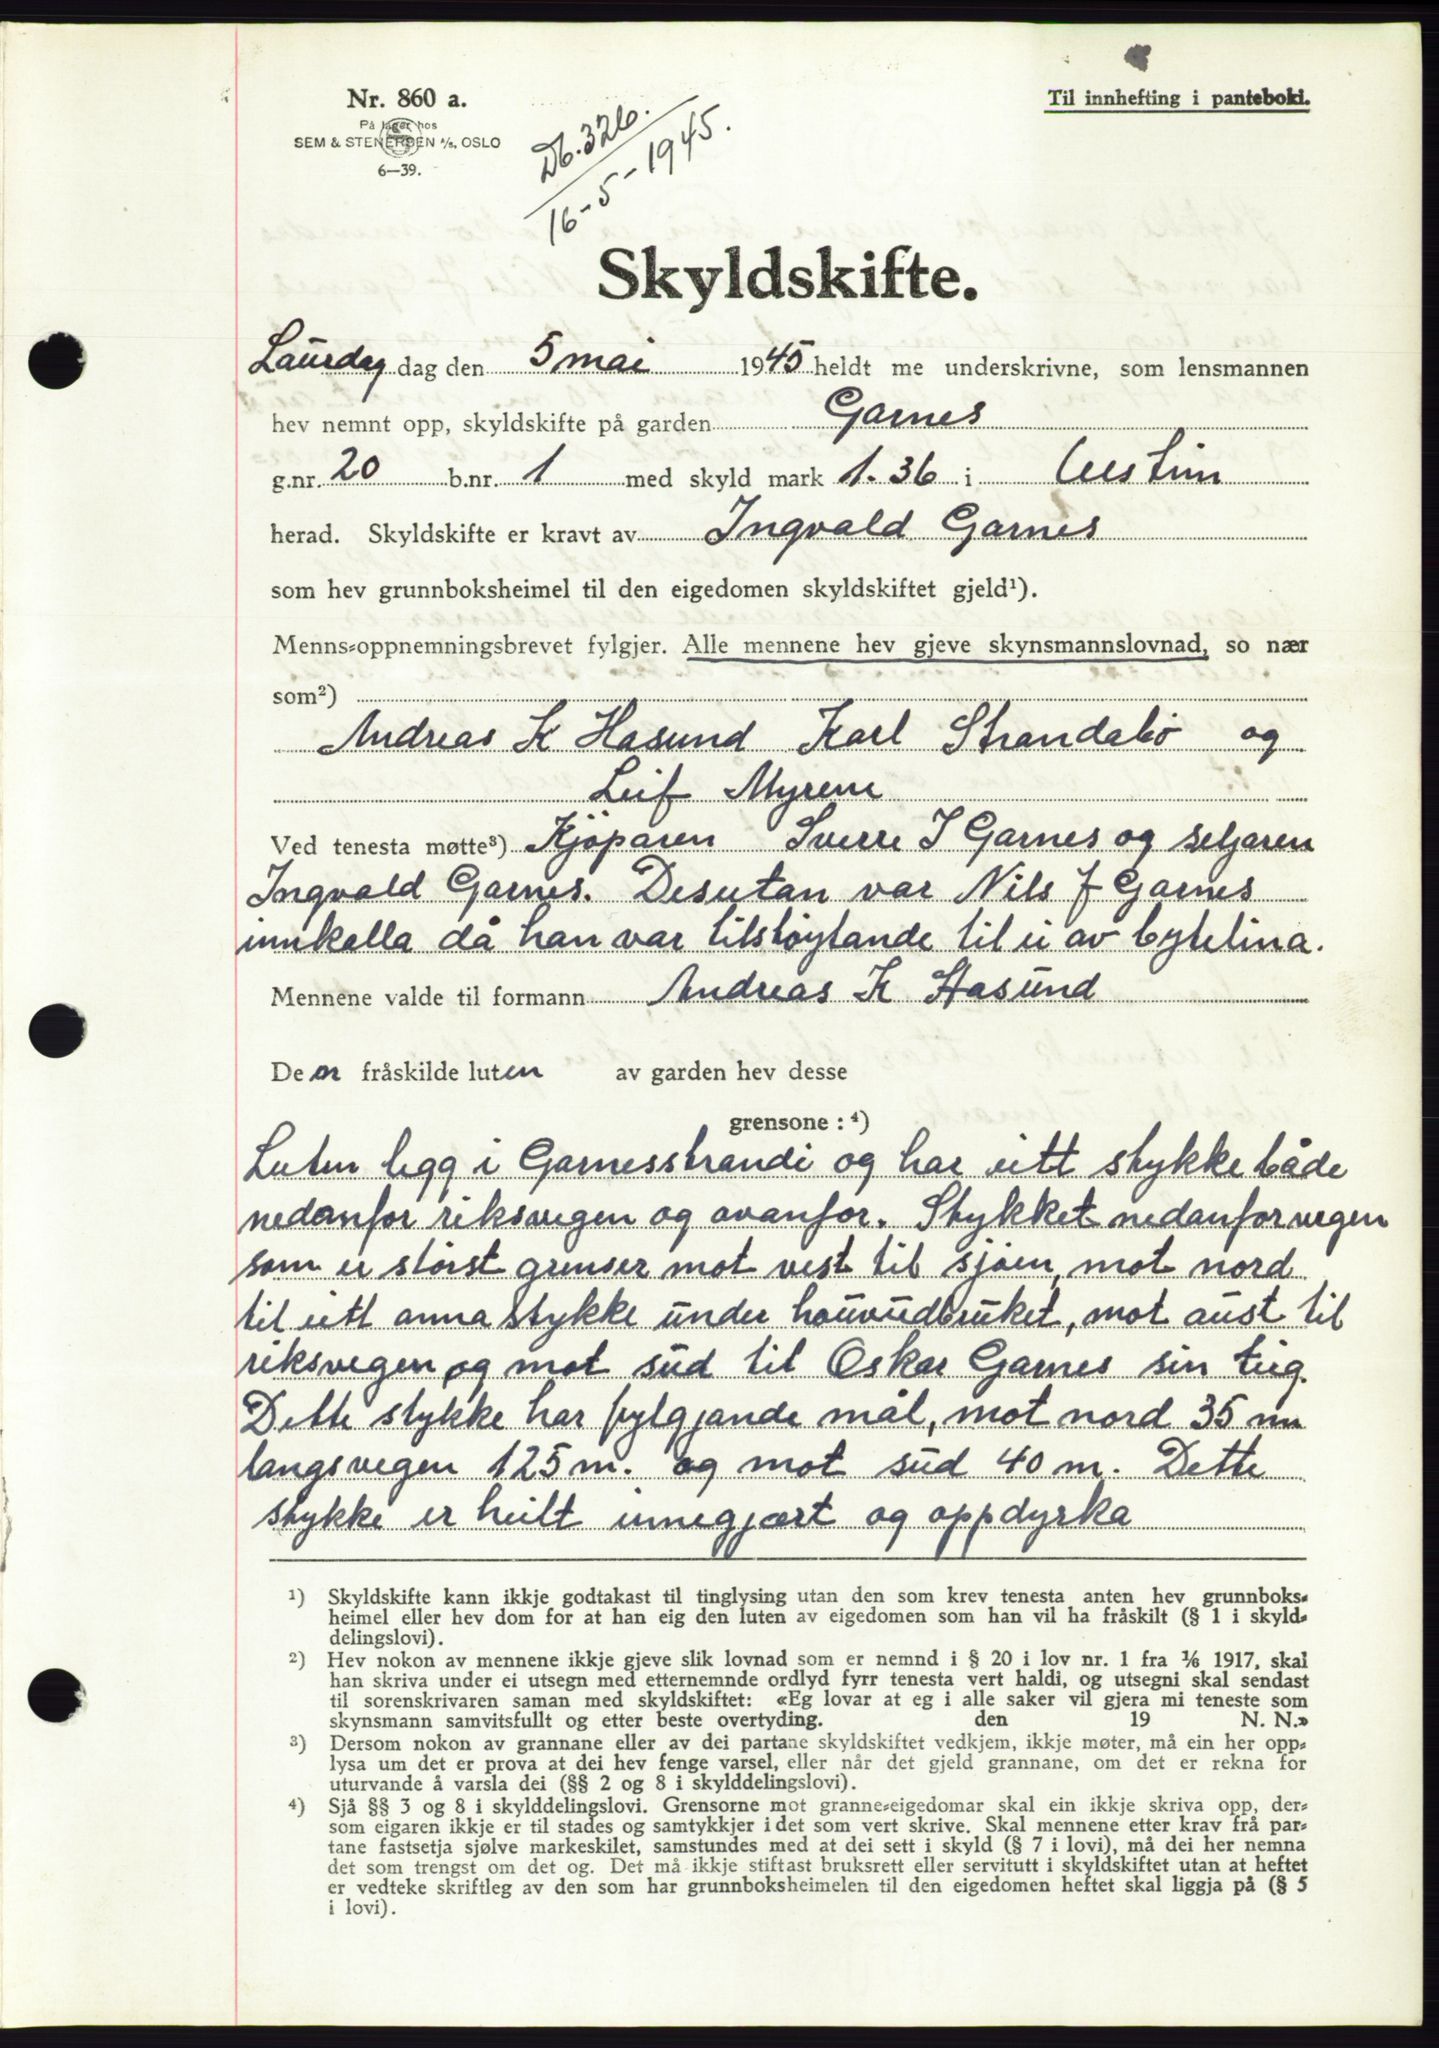 Nr. 860 a.
På lager hos
SEM & STENERSEN A/S, OSLO
6—39.
Db. 326.
16-5-1945.
Til innhefting i panteboki.
Skyldskifte.
Laurdag dag den 5 mai 1945 heldt me underskrivne, som lensmannen
hev nemnt opp, skyldskifte på garden Garnes
g.nr. 20 b.nr. 1 med skyld mark 1.36 i Ulstein
herad. Skyldskifte er kravt av Ingvald Garnes
som hev grunnboksheimel til den eigedomen skyldskiftet gjeld¹).
Menns-oppnemningsbrevet fylgjer. Alle mennene hev gjeve skynsmannslovnad, so nær
som²)
Andreas K Hasund Karl Strandabø og
Leif Myrene
Ved tenesta møtte³) Kjöparen Sverre I Garnes og seljaren
Ingvald Garnes. Desutan var Nils J Garnes
innkalla då han var tilstøytande til ei av bytelina.
Mennene valde til formann Andreas K Hasund
Den fråskilde luten av garden hev desse
grensone : ⁴)
Luten ligg i Garnesstrandi og har eitt stykke både
nedanfor riksvegen og ovanfor. Stykket nedanfor vegen
som er størst grenser mot vest til sjøen, mot nord
til eitt anna stykke under houvudbruket, mot aust til
riksvegen og mot sud til Oskar Garnes sin teig.
Dette stykke har fylgjande mål, mot nord 35 m
langs vegen 125 m. og mot sud 40 m. Dette
stykke er heilt innegjært og oppdyrka
¹) Skyldskifte kann ikkje godtakast til tinglysing utan den som krev tenesta anten hev grunnboks-
heimel eller hev dom for at han eig den luten av eigedomen som han vil ha fråskilt (§ 1 i skyld-
delingslovi).
²) Hev nokon av mennene ikkje gjeve slik lovnad som er nemnd i § 20 i lov nr. 1 fra 1/6 1917, skal
han skriva under ei utsegn med etternemnde ordlyd fyrr tenesta vert haldi, og utsegni skal sendast
til sorenskrivaren saman med skyldskiftet: «Eg lovar at eg i alle saker vil gjera mi teneste som
skynsmann samvitsfullt og etter beste overtyding. den 19 N. N.»
³) Dersom nokon av grannane eller av dei partane skyldskiftet vedkjem, ikkje møter, må ein her opp-
lysa um det er prova at dei hev fenge varsel, eller når det gjeld grannane, om det er rekna for
uturvande å varsla dei (§§ 2 og 8 i skylddelingslovi).
⁴) Sjå §§ 3 og 8 i skylddelingslovi. Grensorne mot granne-eigedomar skal ein ikkje skriva opp, der-
som eigaren ikkje er til stades og samtykkjer i det som vert skrive. Skal mennene etter krav frå par-
tane fastsetja sjølve markeskilet, samstundes med at dei sett i skyld (§ 7 i lovi), må dei her nemna
det som trengst om det og. Det må ikkje stiftast bruksrett eller servitutt i skyldskiftet utan at heftet
er vedteke skriftleg av den som har grunnboksheimelen til den eigedomen heftet skal liggja på (§ 5
i lovi).